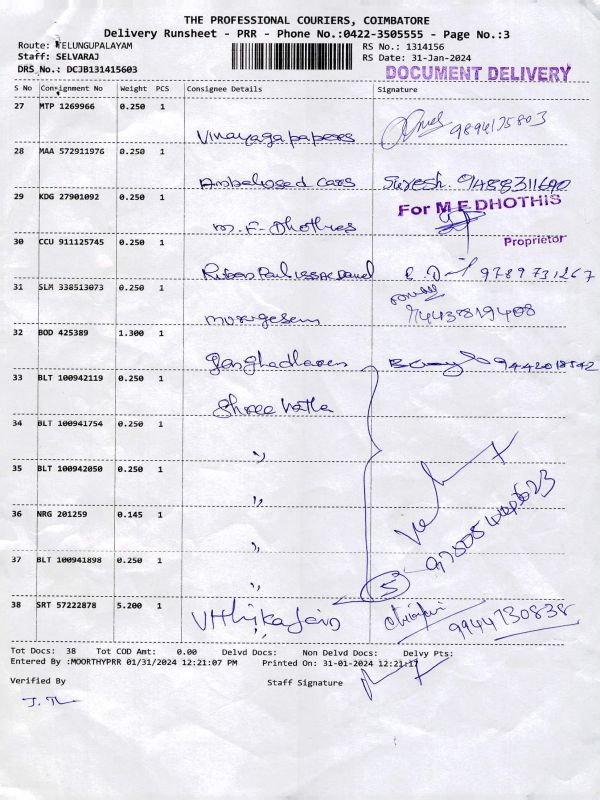 THE PROFESSIONAL COURIERS, COIMBATORE
Delivery Runsheet - PRR - Phone No.:0422-3505555 - Page No.:3
Route: TELUNGUPALAYAM RS No.: 1314156
Staff: SELVARAJ RS Date: 31-Jan-2024
DRS No.: DCJB131415603 DOCUMENT DELIVERY
S No Consignment No Weight PCS Consignee Details Signature
27 MTP 1269966 0.250 1
Vinayaga papers 9894175803
28 MAA 572911976 0.250 1
cars Suresh 9488311690
29 KDG 27901092 0.250 1
For M F DHOTHIS
M.F. Dhothies
Proprietor
30 CCU 911125745 0.250 1
9789731267
31 SLM 338513073 0.250 1
murugesan 9443819408
32 BOD 425389 1.300 1
9442018542
33 BLT 100942119 0.250 1
Shree
34 BLT 100941754 0.250 1
"
35 BLT 100942050 0.250 1
"
36 NRG 201259 0.145 1
"
37 BLT 100941898 0.250 1
"
5
38 SRT 57222878 5.200 1
9944730838
Tot Docs: 38 Tot COD Amt: 0.00 Delvd Docs: Non Delvd Docs: Delvy Pts:
Entered By :MOORTHYPRR 01/31/2024 12:21:07 PM Printed On: 31-01-2024 12:21:17
Verified By Staff Signature